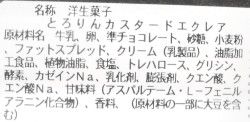 名称　洋生菓子
とろりんカスタードエクレア
原材料名　牛乳、卵、準チョコレート、砂糖、小麦粉
、ファットスプレッド、クリーム（乳製品）、油脂加
工食品、植物油脂、食塩、トレハロース、グリシン、
酵素、カゼインNa、乳化剤、膨張剤、クエン酸、ク
エン酸Na、甘味料（アスパルテーム・L－フェニル
アラニン化合物）、香料、（原材料の一部に大豆を含
む）